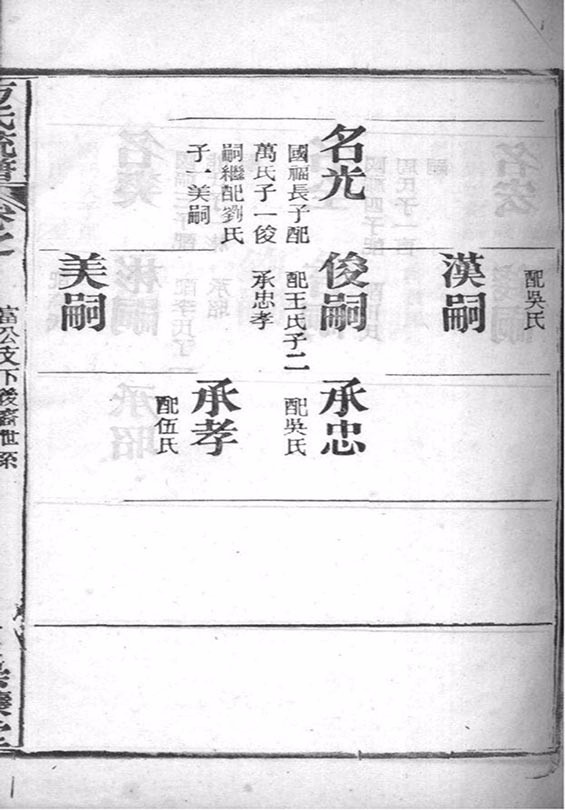 名光
國福長子配
萬氏子一俊
嗣繼配劉氏
子一美嗣
配吳氏
漢嗣
俊嗣
配王氏子二
承忠孝
美嗣
承忠
配吳氏
承孝
配伍氏
卷之
公支下後裔世系